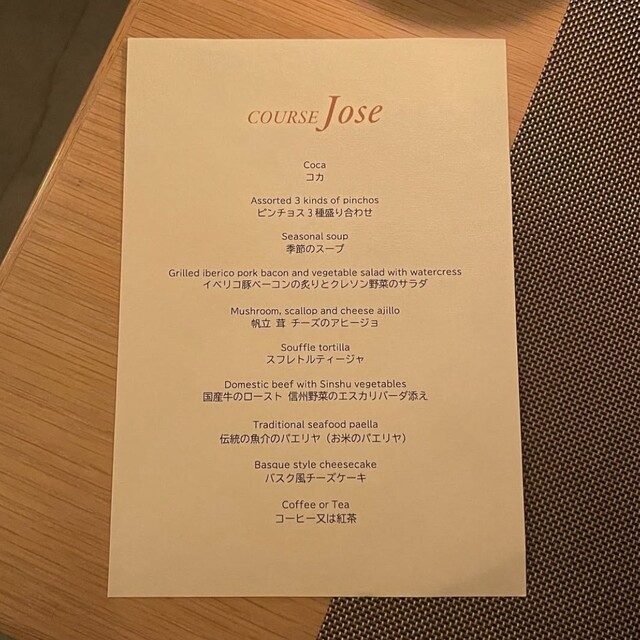 COURSE Jose
Coca
コカ
Assorted 3 kinds of pinchos
ピンチョス3種盛り合わせ
Seasonal soup
季節のスープ
Grilled iberico pork bacon and vegetable salad with watercress
イベリコ豚ベーコンの炙りとクレソン野菜のサラダ
Mushroom, scallop and cheese ajillo
帆立 茸 チーズのアヒージョ
Souffle tortilla
スフレトルティージャ
Domestic beef with Sinshu vegetables
国産牛のロースト 信州野菜のエスカリバーダ添え
Traditional seafood paella
伝統の魚介のパエリヤ（お米のパエリヤ)
Basque style cheesecake
バスク風チーズケーキ
Coffee or Tea
コーヒー又は紅茶